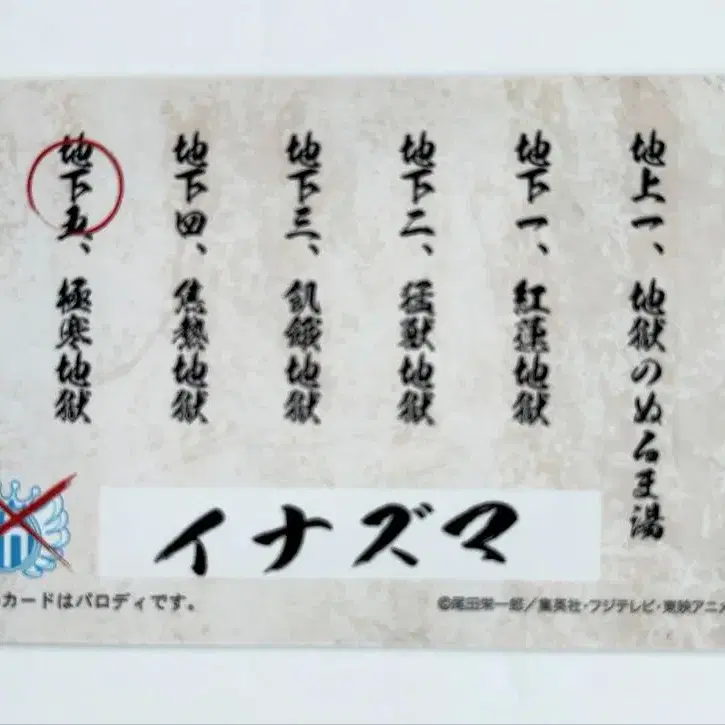 地上一、地獄のぬるま湯
地下一、紅蓮地獄
地下二、猛獣地獄
地下三、飢餓地獄
地下四、焦熱地獄
地下五、極寒地獄
イナズマ
カードはパロディです。
©尾田栄一郎／集英社・フジテレビ・東映アニメ